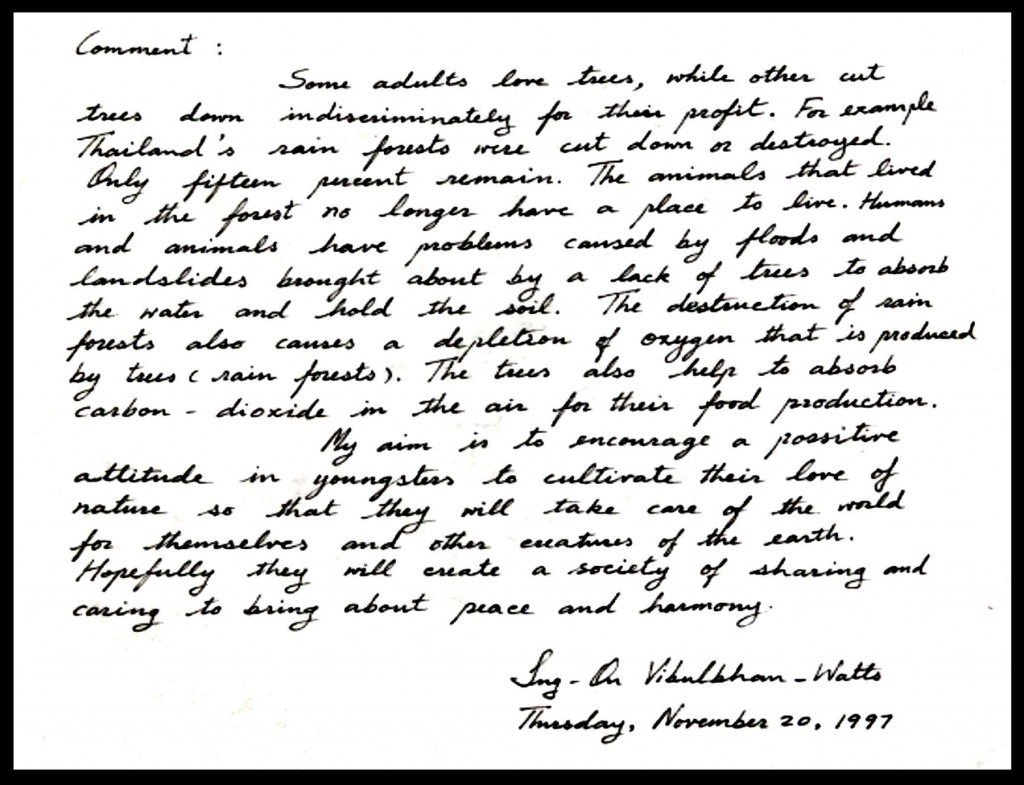 Comment :
Some adults love trees, while other cut
trees down indiscriminately for their profit. For example
Thailand's rain forests were cut down or destroyed.
Only fifteen percent remain. The animals that lived
in the forest no longer have a place to live. Humans
and animals have problems caused by floods and
landslides brought about by a lack of trees to absorb
the water and hold the soil. The destruction of rain
forests also causes a depletion of oxygen that is produced
by trees (rain forests). The trees also help to absorb
carbon - dioxide in the air for their food production.
My aim is to encourage a possitive
attitude in youngsters to cultivate their love of
nature so that they will take care of the world
for themselves and other creatures of the earth.
Hopefully they will create a society of sharing and
caring to bring about peace and harmony.
Ing - On Vibulbhan - Watts
Thursday, November 20, 1997